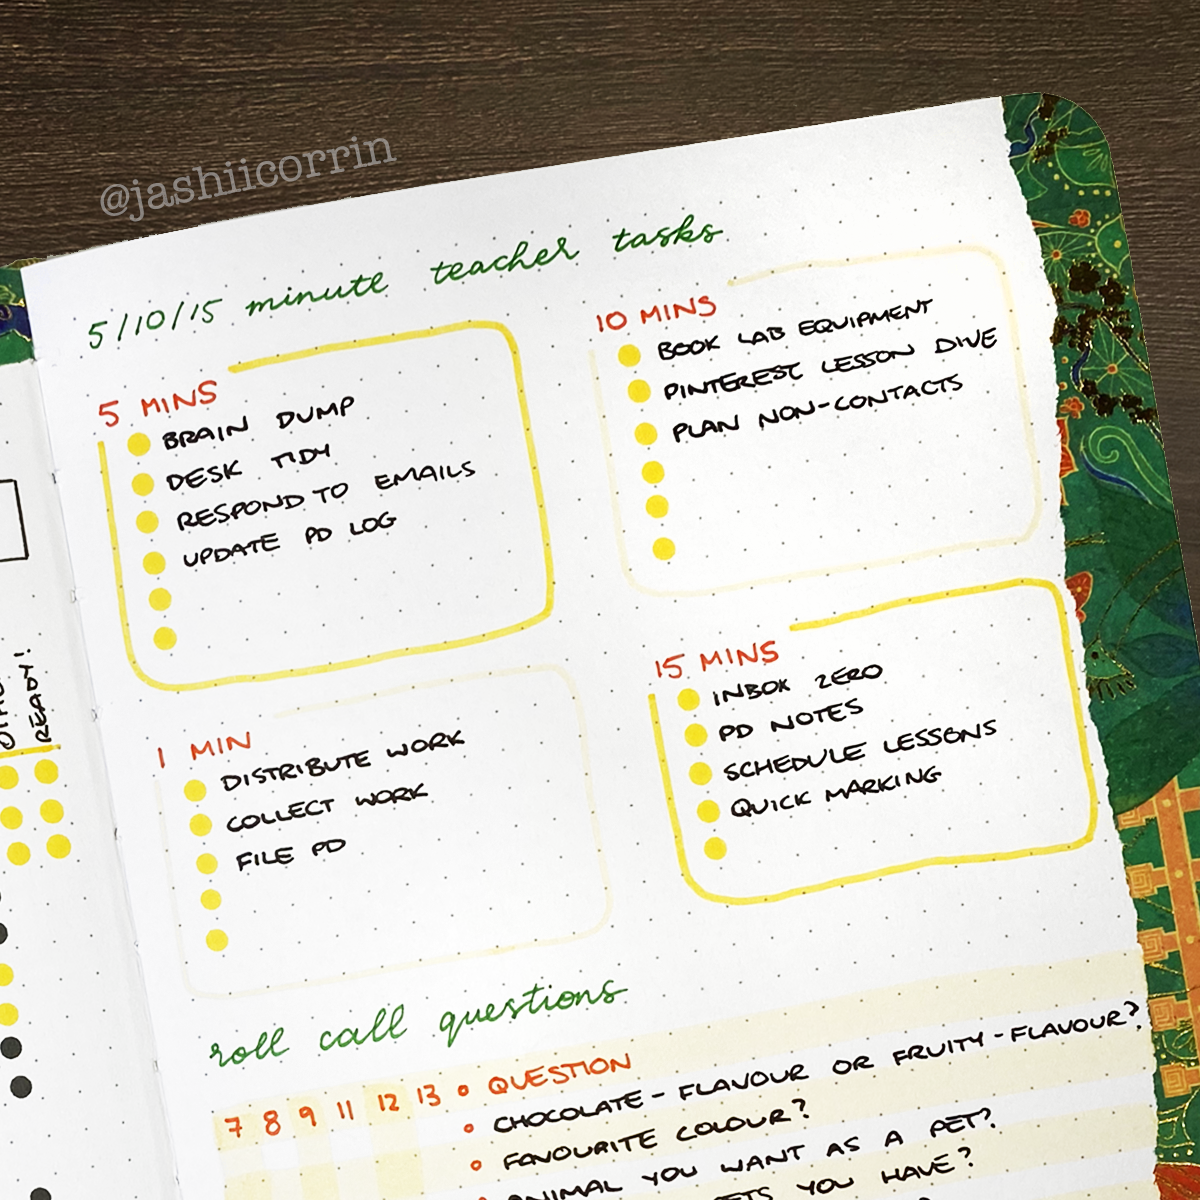 @jashiicorrin
5/10/15 minute teacher tasks
5 MINS
BRAIN DUMP
DESK TIDY
RESPOND TO EMAILS
UPDATE PD LOG
10 MINS
BOOK LAB EQUIPMENT
PINTEREST LESSON DIVE
PLAN NON-CONTACTS
1 MIN
DISTRIBUTE WORK
COLLECT WORK
FILE PD
15 MINS
INBOX ZERO
PD NOTES
SCHEDULE LESSONS
QUICK MARKING
READY!
roll call questions
7 8 9 11 12 13 QUESTION
CHOCOLATE-FLAVOUR OR FRUITY-FLAVOUR?
FAVOURITE COLOUR?
ANIMAL YOU WANT AS A PET?
YOU HAVE?